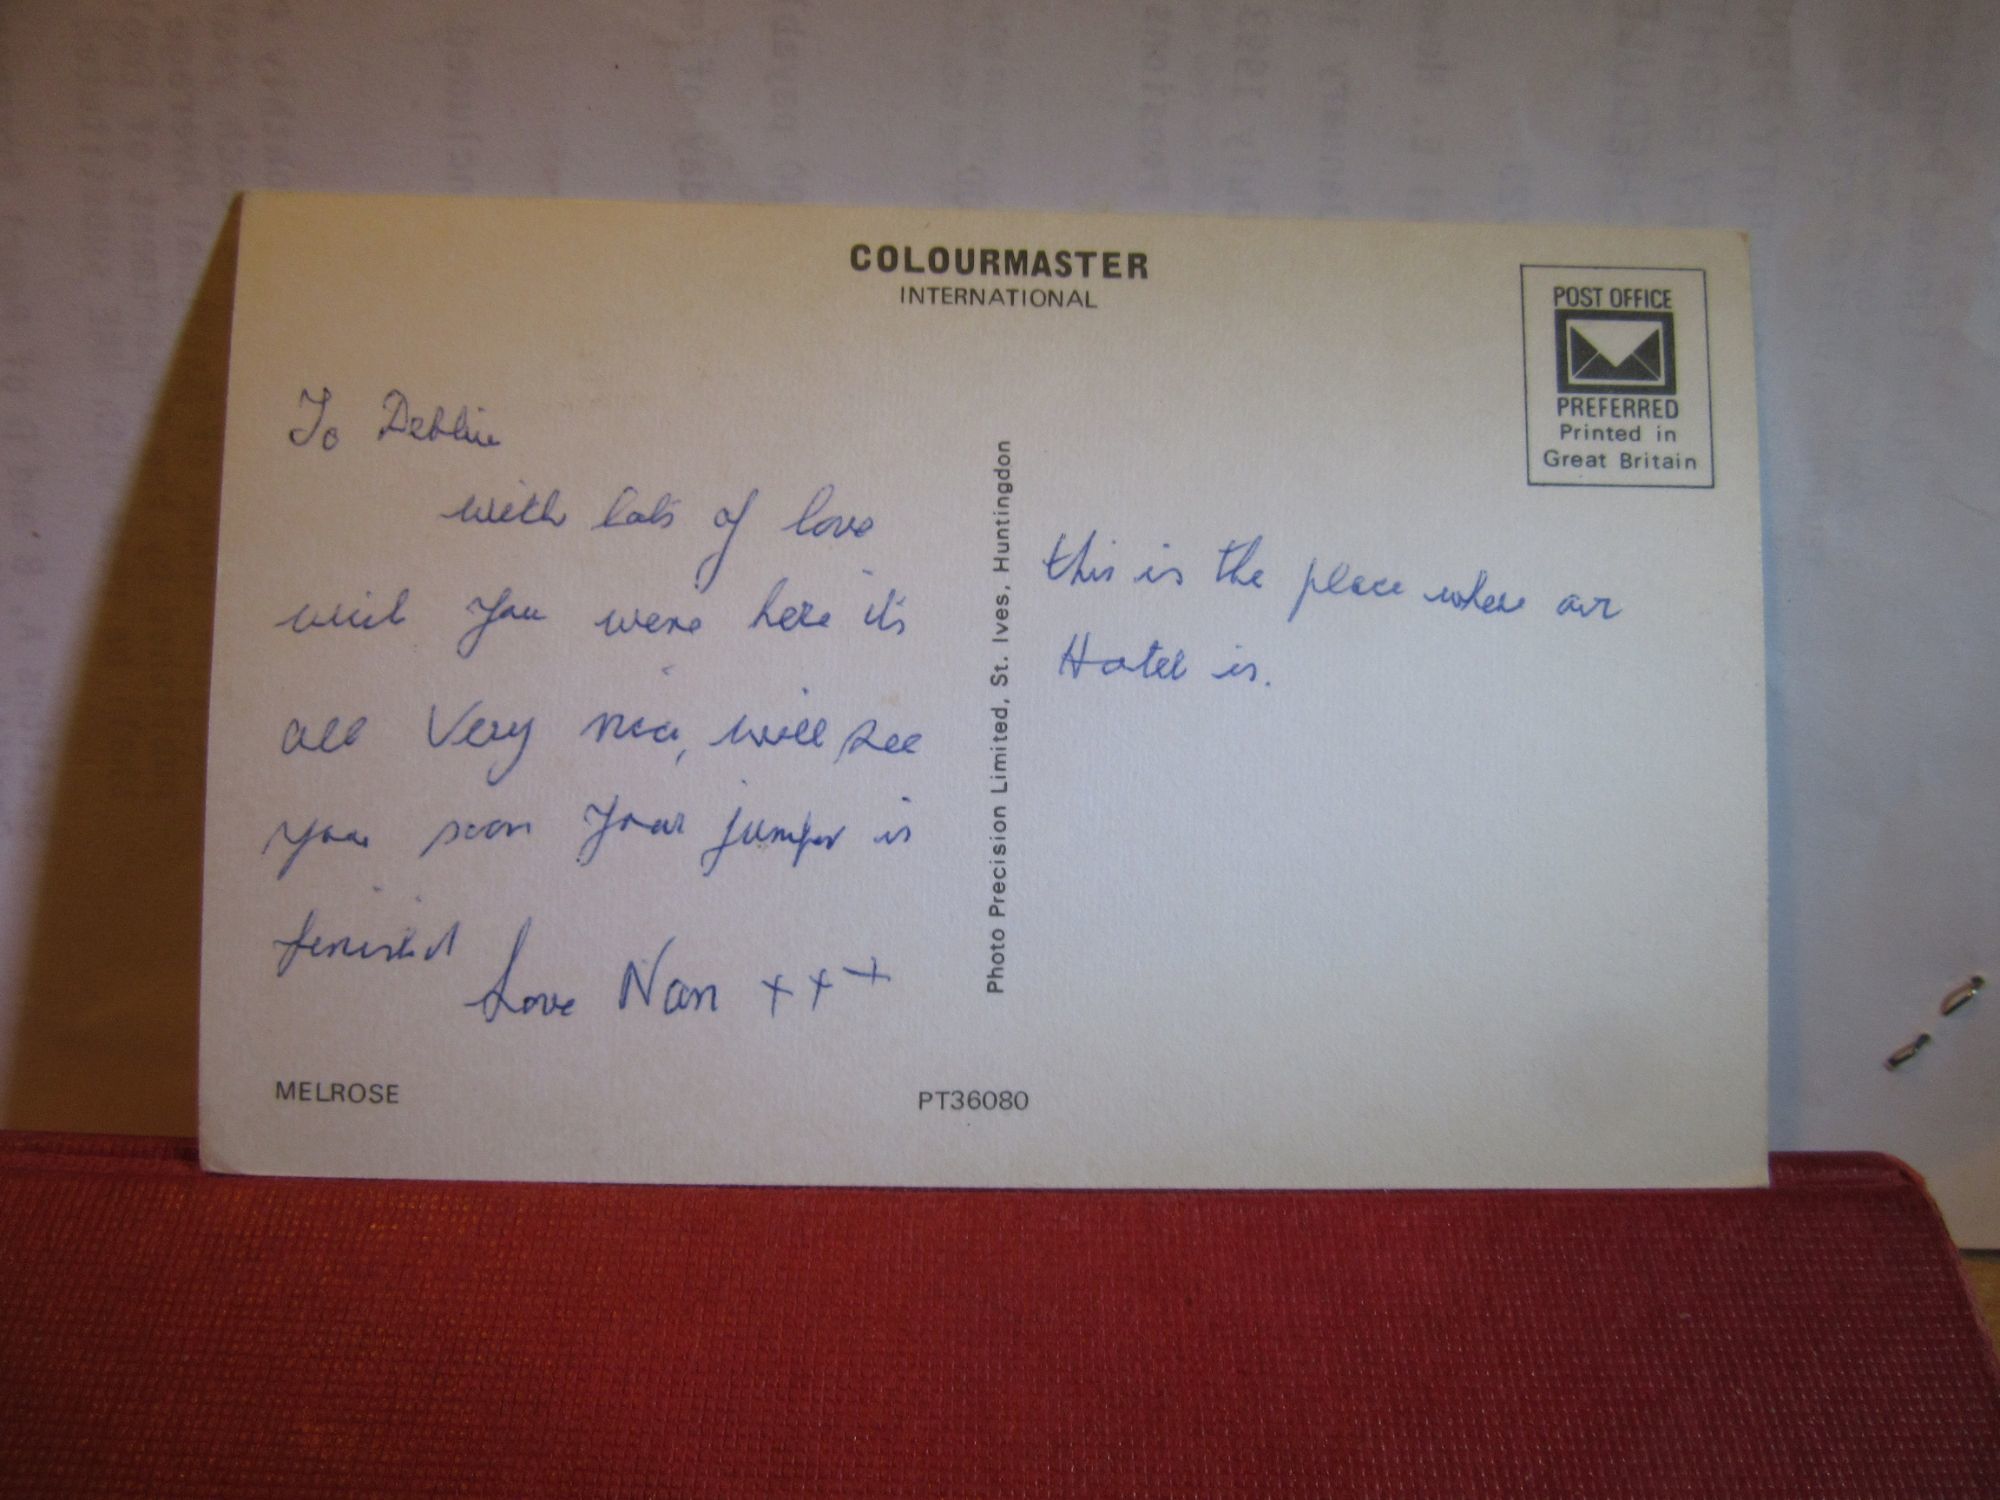 COLOURMASTER
INTERNATIONAL
POST OFFICE
PREFERRED
Printed in
Great Britain
To Debbie
with lots of love
wish you were here it's
all very nice, will see
you soon your jumper is
finished
Love Nan xxx
Photo Precision Limited, St. Ives, Huntingdon
this is the place where our
Hotel is.
MELROSE
PT36080